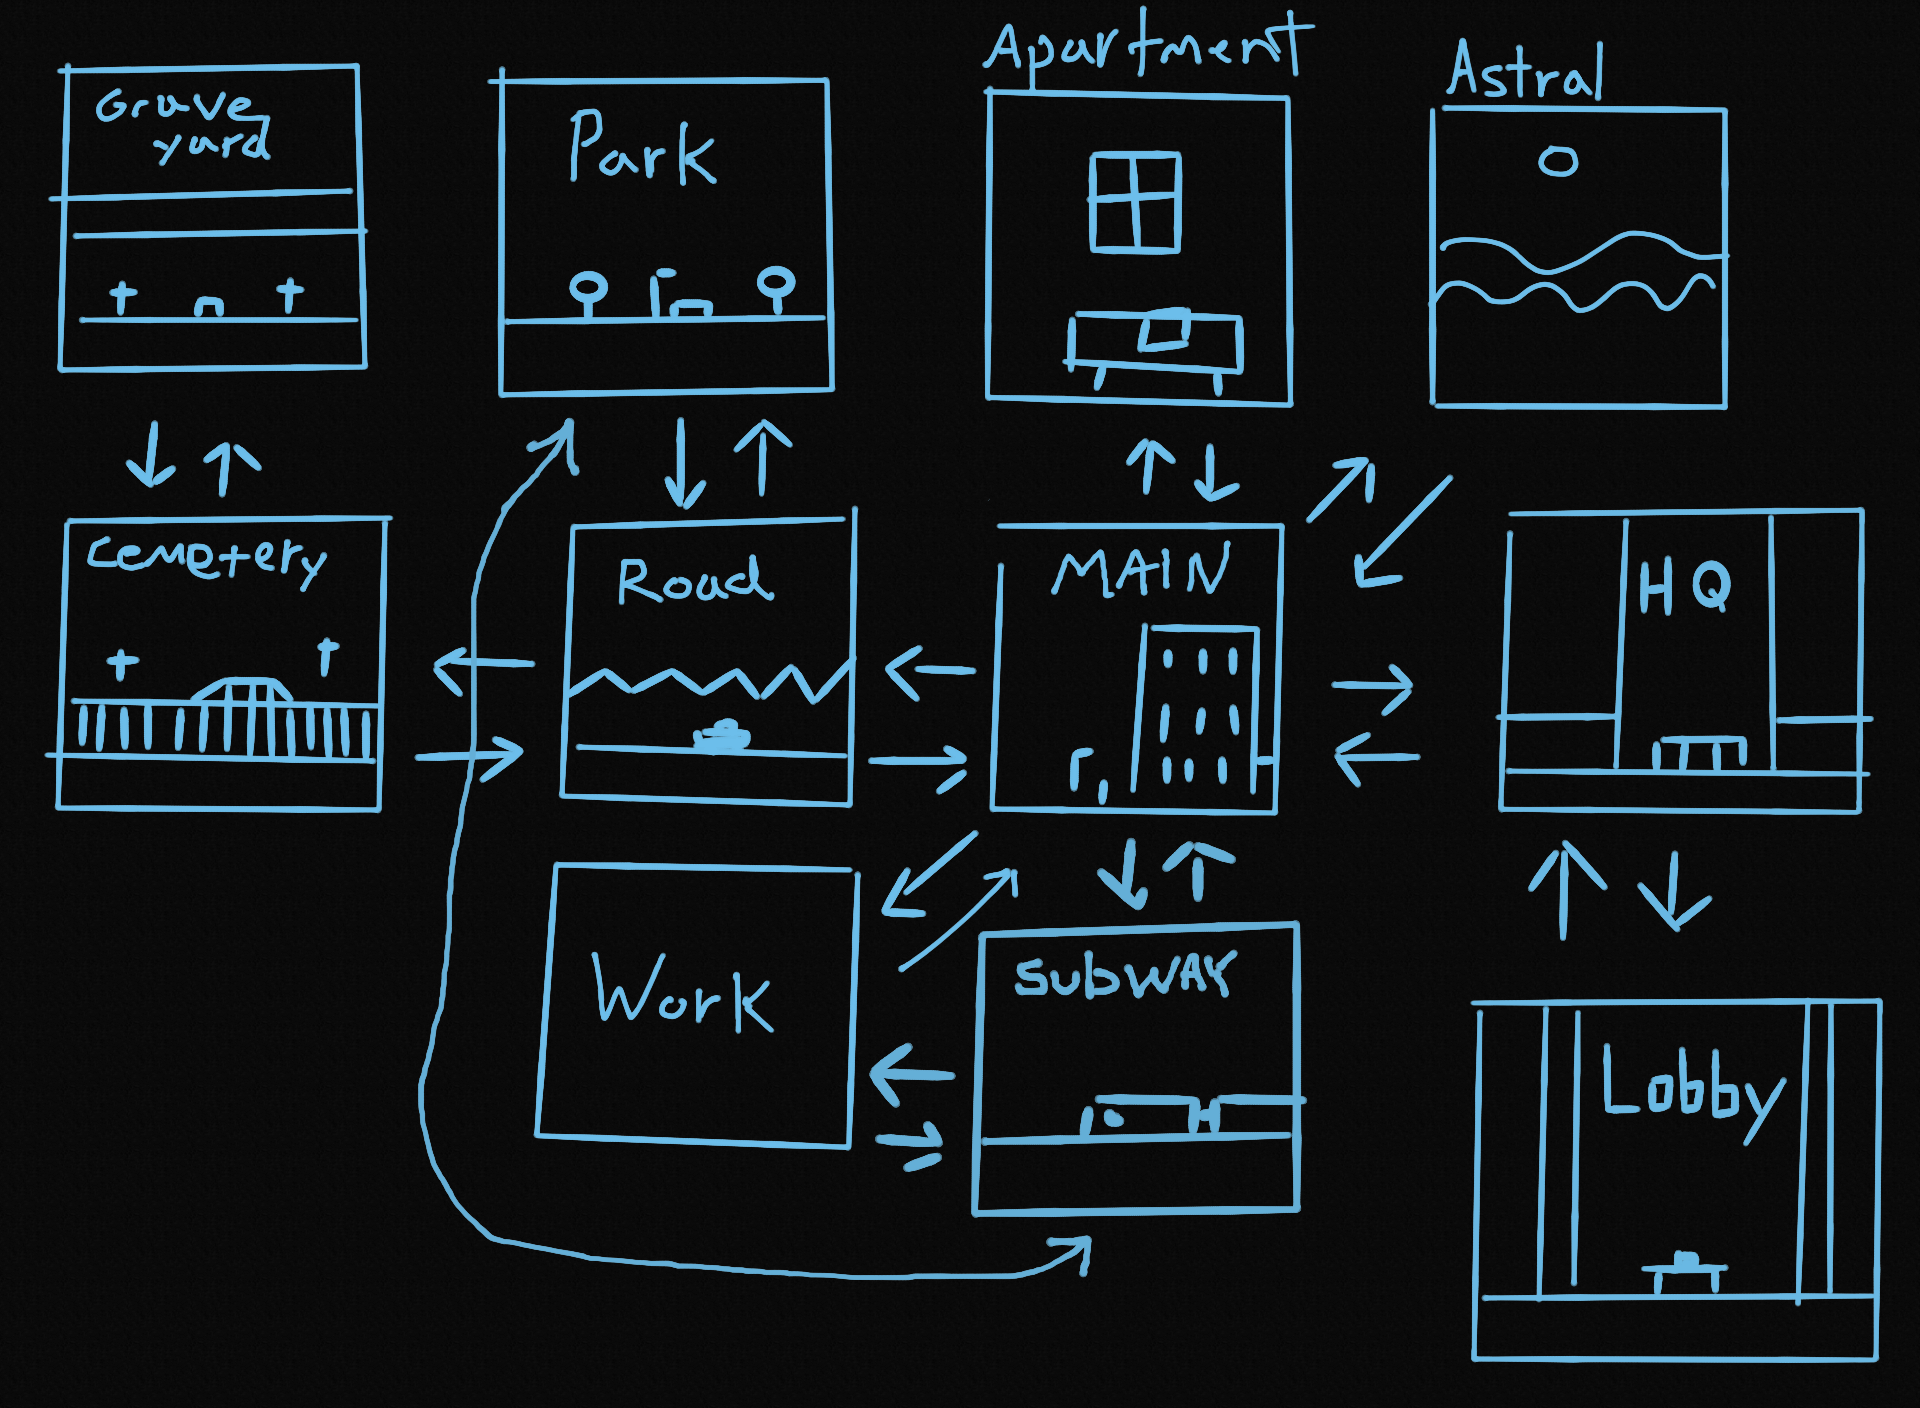 Grave
yard
Park
Apartment
Astral
Cemetery
Road
MAIN
HQ
Work
SubWAY
Lobby